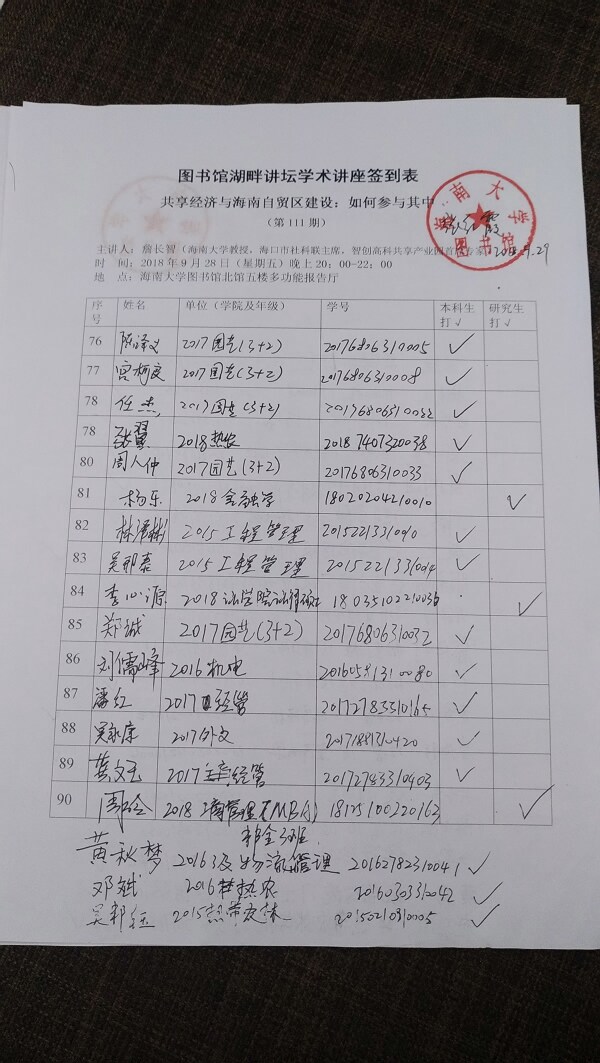 图书馆湖畔讲坛学术讲座签到表
共享经济与海南自贸区建设：如何参与其中
（第 111 期）
海南大学
图书馆
主讲人：詹长智（海南大学教授，海口市社科联主席，智创高科共享产业园首席专家）
时 间：2018 年 9 月 28 日（星期五）晚上 20：00-22：00
地 点：海南大学图书馆北馆五楼多功能报告厅
序号 姓名 单位（学院及年级） 学号 本科生打√ 研究生打√
76 2017园艺(3+2) 20176806310005 √
77 宫柯良 2017园艺(3+2) 20176806310008 √
78 任杰 2017园艺(3+2) 20176806310032 √
78 张翼 2018热农 20187407320038 √
80 周人仲 2017园艺(3+2) 20176806310033 √
81 杨乐 2018金融学 18020204210010 √
82 林泽彬 2015工程管理 √
83 吴邦泰 2015工程管理 √
84 李心源 2018法学院 18035102210036 √
85 郑斌 2017园艺(3+2) 20176806310032 √
86 刘儒峰 2016机电 20160581310080 √
87 潘红 2017经管 20172783310165 √
88 吴家康 2017外文 √
89 龚文玉 2017经管 20172783310403 √
90 周玲 2018工商管理(MBA) 18125100220163 √
黄秋梦 2016级物流管理 20162782310041 √
邓斌 2016热农 20160303310042 √
吴邦钰 2015热带农林 20150210310005 √